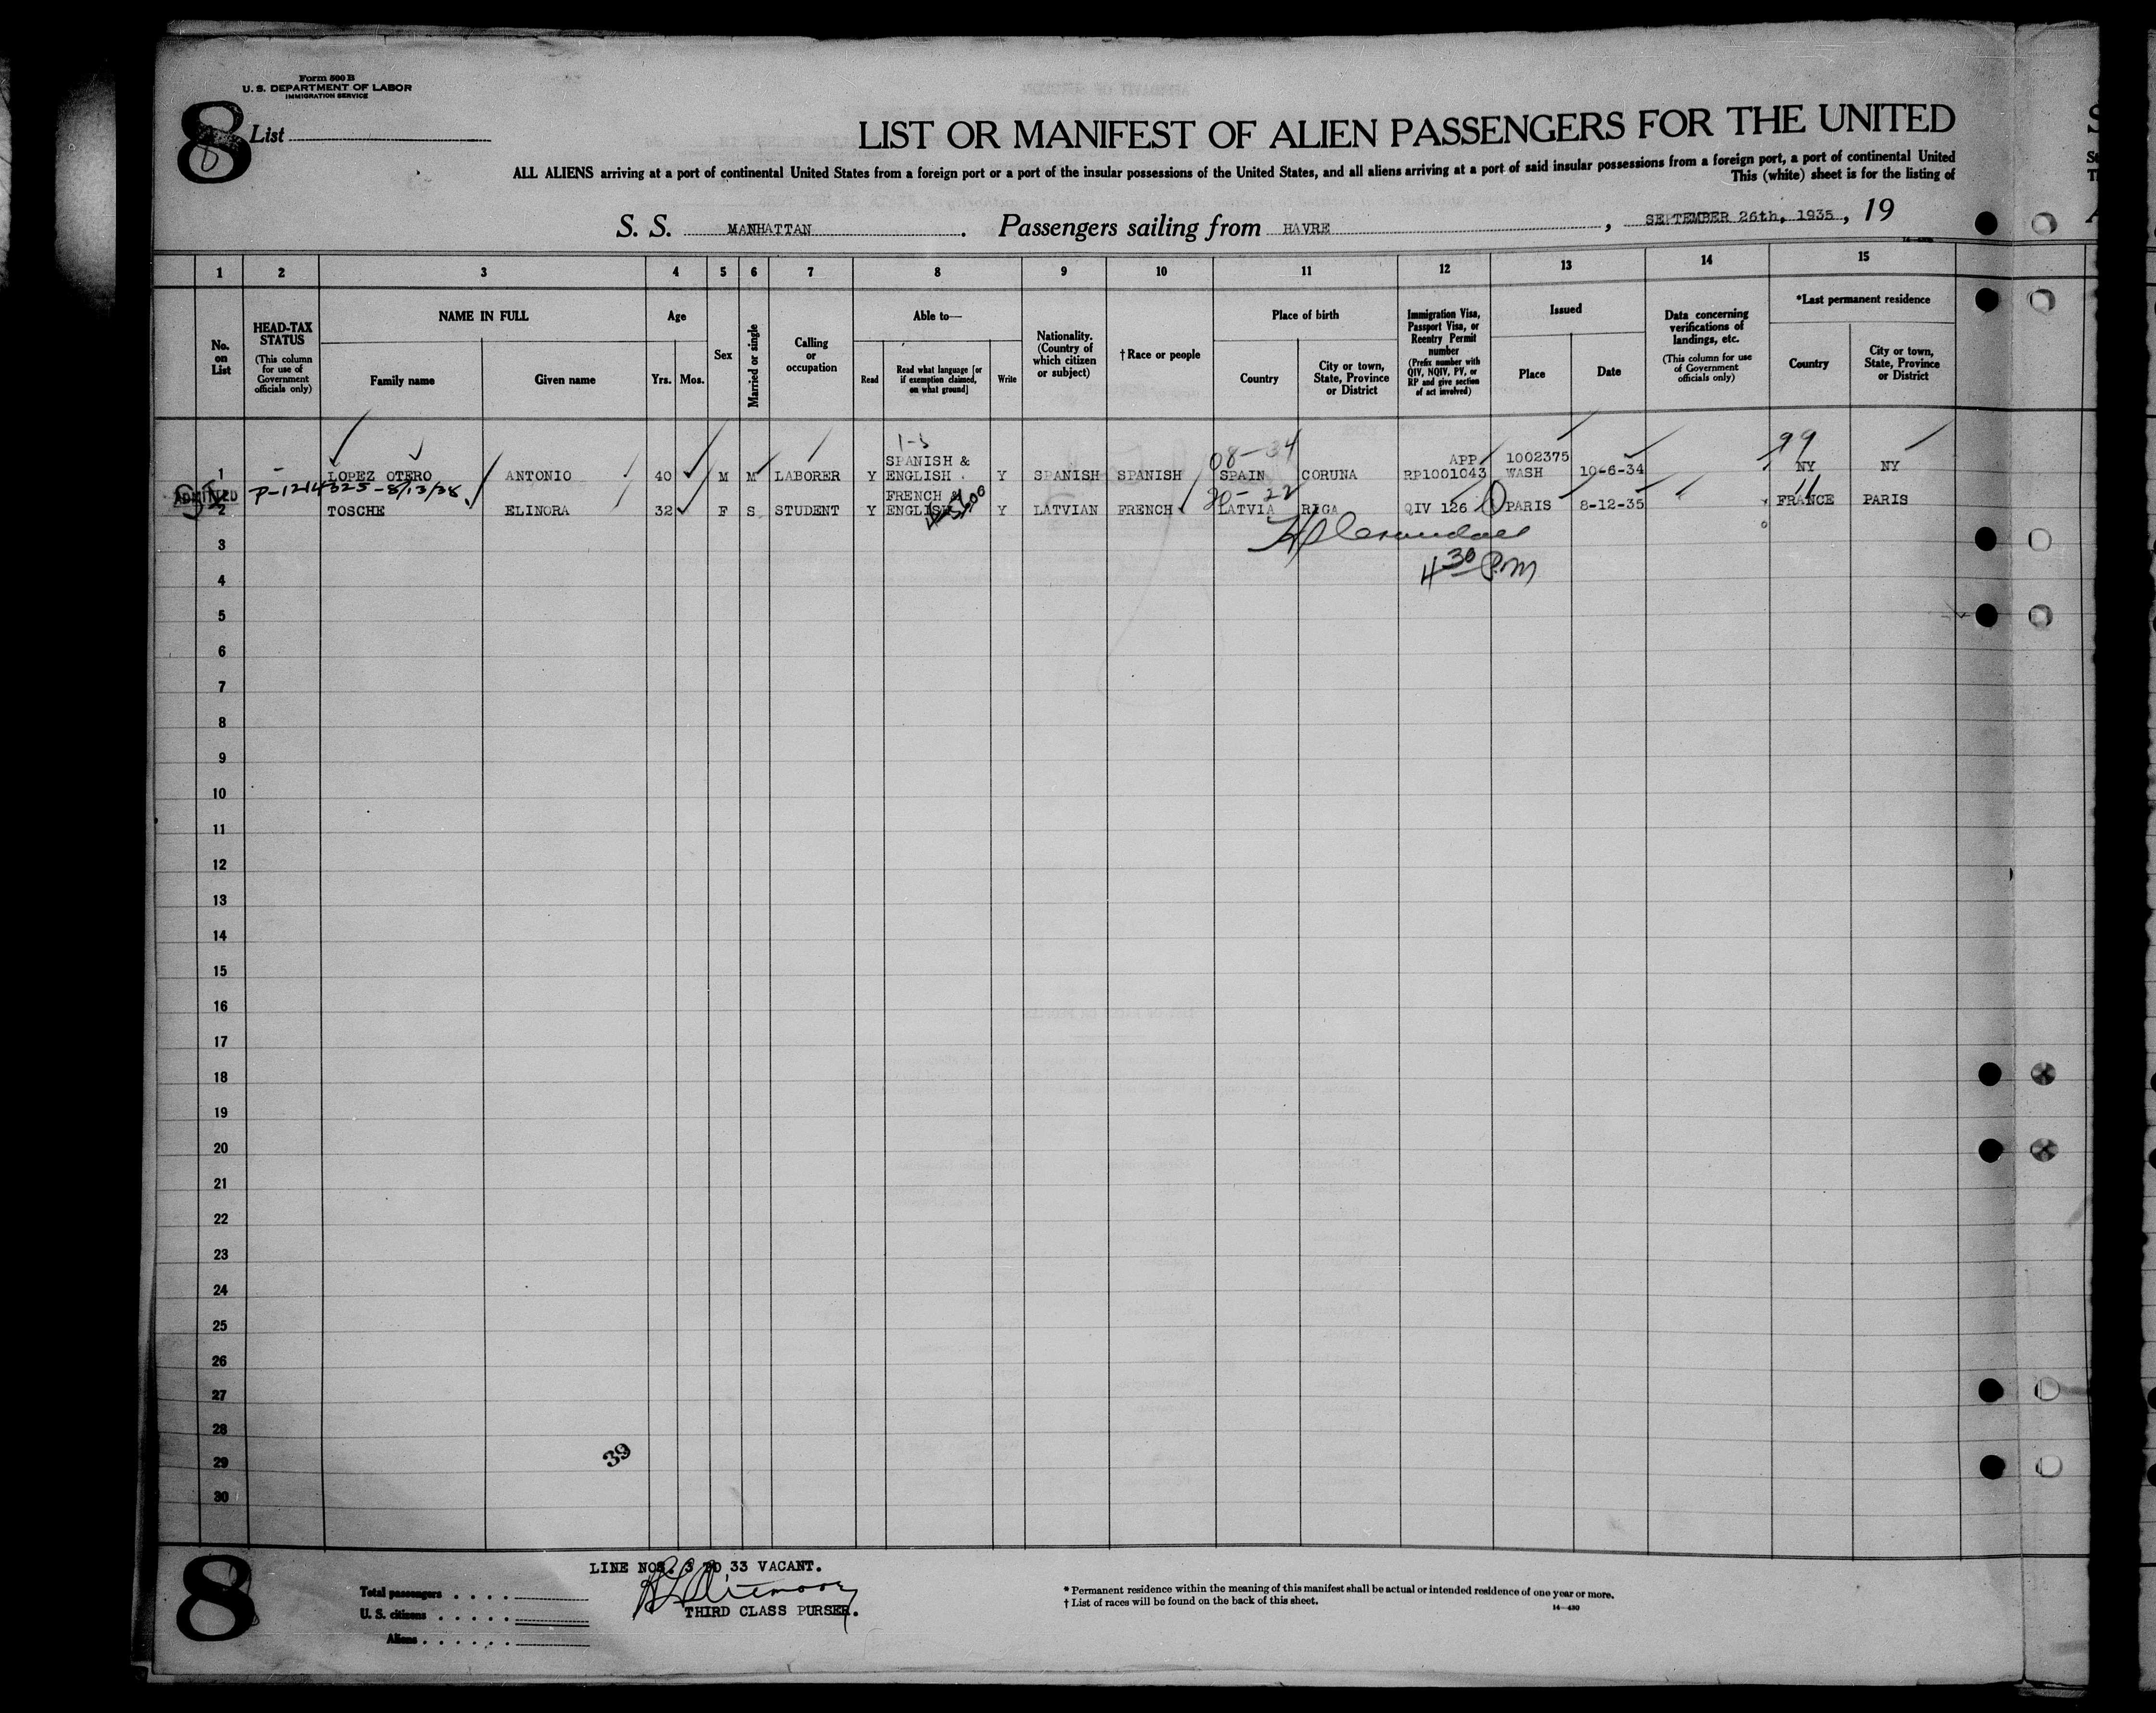 Form 500 B
U. S. DEPARTMENT OF LABOR
IMMIGRATION SERVICE
8 List
LIST OR MANIFEST OF ALIEN PASSENGERS FOR THE UNITED
ALL ALIENS arriving at a port of continental United States from a foreign port or a port of the insular possessions of the United States, and all aliens arriving at a port of said insular possessions from a foreign port, a port of continental United
This (white) sheet is for the listing of
S. S. MANHATTAN . Passengers sailing from HAVRE , SEPTEMBER 26th, 1935 , 19
1 2 3 4 5 6 7 8 9 10 11 12 13 14 15
No. on List
HEAD-TAX STATUS
(This column for use of Government officials only)
NAME IN FULL
Family name
Given name
Age
Yrs. Mos.
Sex
Married or single
Calling or occupation
Able to—
Read
Read what language [or if exemption claimed, on what ground]
Write
Nationality. (Country of which citizen or subject)
† Race or people
Place of birth
Country
City or town, State, Province or District
Immigration Visa, Passport Visa, or Reentry Permit number
(Prefix number with QIV, NQIV, PV, or RP and give section of act involved)
Issued
Place
Date
Data concerning verifications of landings, etc.
(This column for use of Government officials only)
*Last permanent residence
Country
City or town, State, Province or District
1-5 08-34 99
1 LOPEZ OTERO ANTONIO 40 M M LABORER Y SPANISH & ENGLISH Y SPANISH SPANISH SPAIN CORUNA APP RP1001043 1002375 WASH 10-6-34 NY NY
ADMITTED P-1214325-8/13/38 20-22 11
2 TOSCHE ELINORA 32 F S STUDENT Y FRENCH & ENGLISH Y LATVIAN FRENCH LATVIA RIGA QIV 126 PARIS 8-12-35 FRANCE PARIS
3
4 4 30 P.M
5
6
7
8
9
10
11
12
13
14
15
16
17
18
19
20
21
22
23
24
25
26
27
28
29 39
30
8
LINE NOS. 3 TO 33 VACANT.
THIRD CLASS PURSER.
Total passengers
U. S. citizens
Aliens
* Permanent residence within the meaning of this manifest shall be actual or intended residence of one year or more.
† List of races will be found on the back of this sheet.
14—430